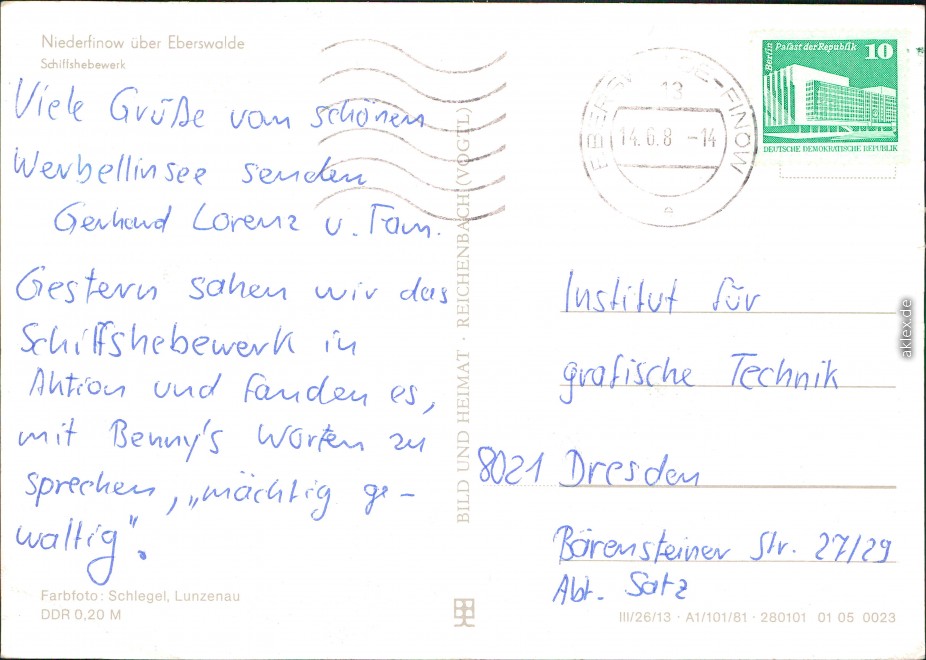 Niederfinow über Eberswalde
Schiffshebewerk
Viele Grüße vom schönen
Werbellinsee senden
Gerhard Lorenz u. Fam.
Gestern sahen wir das
Schiffshebewerk in
Aktion und fanden es,
mit Benny's Worten zu
sprechen, „mächtig ge-
waltig".
Farbfoto: Schlegel, Lunzenau
DDR 0,20 M
BILD UND HEIMAT · REICHENBACH (VOGTL)
EBERSWALDE-FINOW
13
14.6.8 -14
e
Berlin Palast der Republik 10
DEUTSCHE DEMOKRATISCHE REPUBLIK
Institut für
grafische Technik
8021 Dresden
Bärensteiner Str. 27/29
Abt. Satz
III/26/13 · A1/101/81 · 280101 01 05 0023
aklex.de